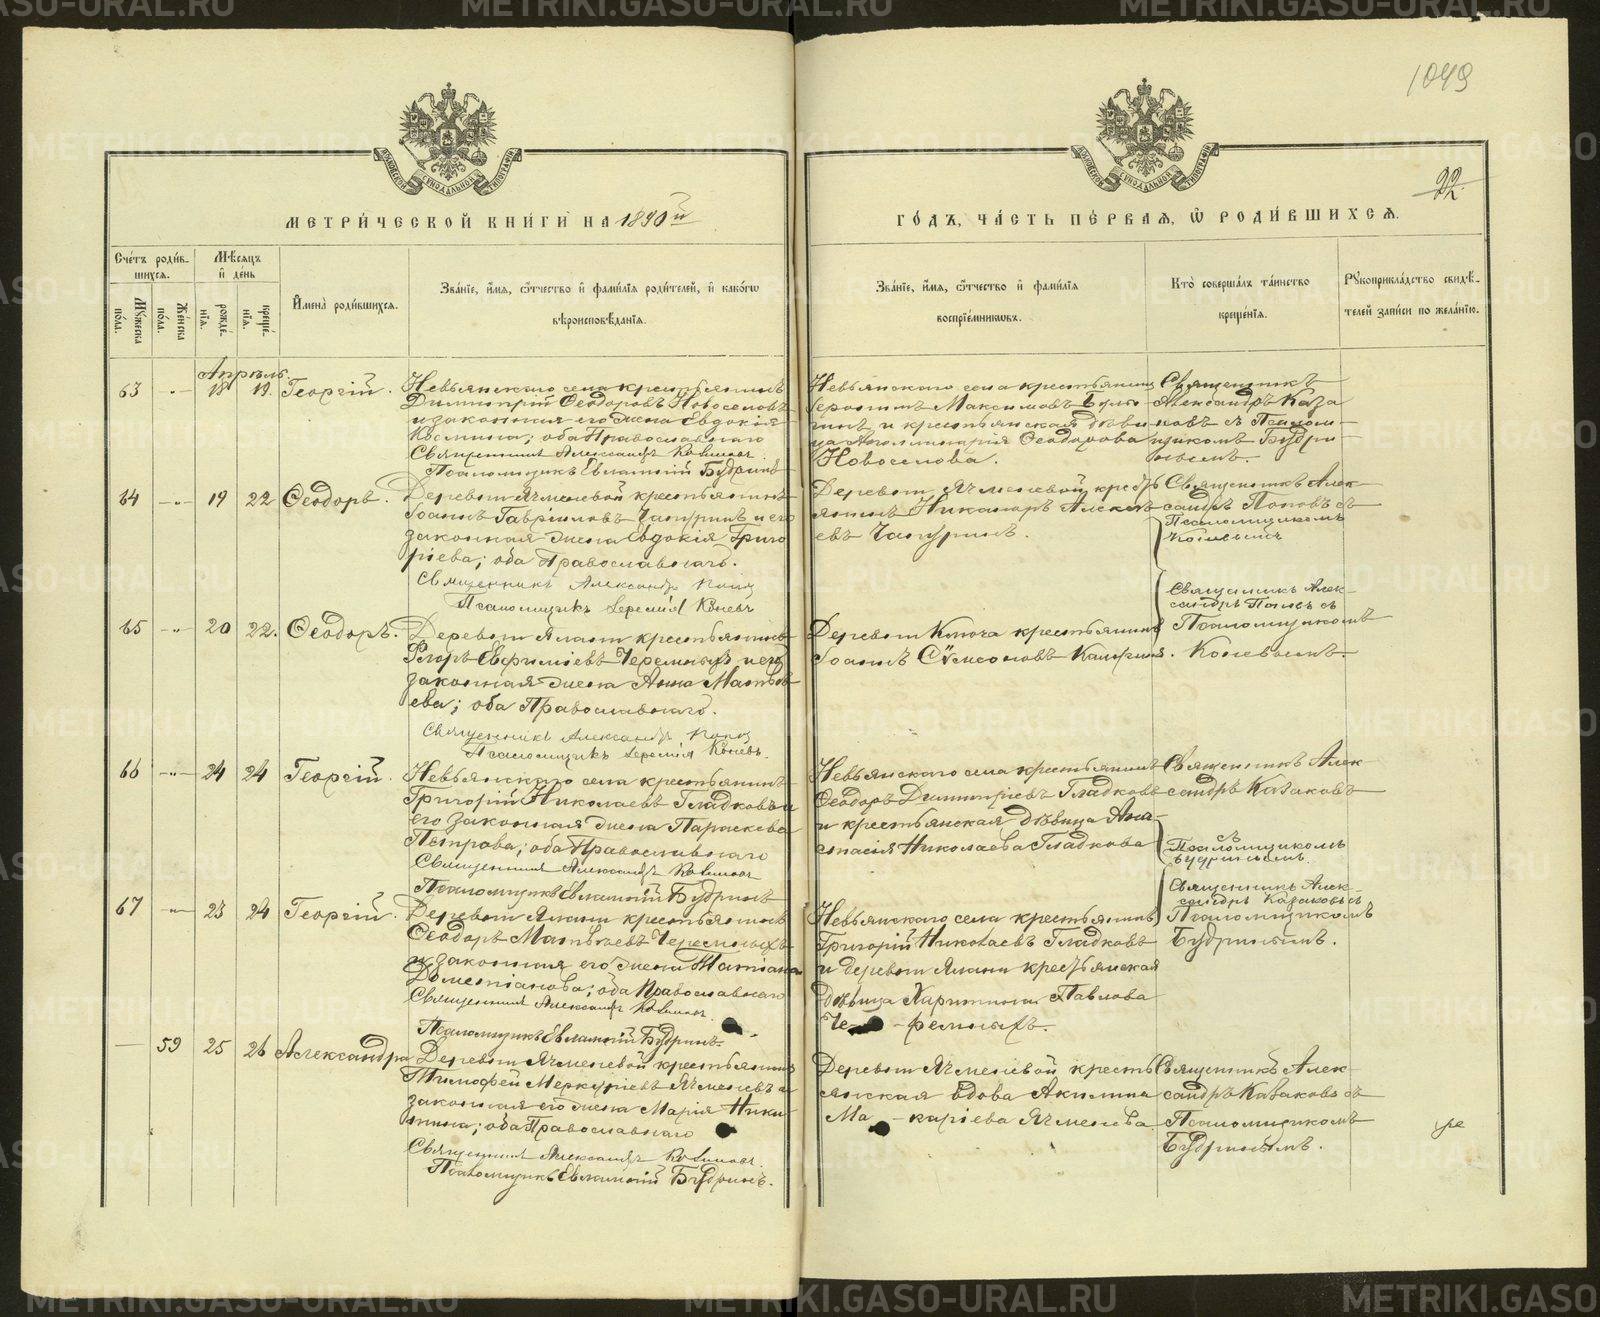 1049
22.
МЕТРИ́ЧЕСКОЙ КНИ́ГИ НА 1890й
ГО́ДЪ, ЧА́СТЬ ПЕ́РВАѦ, Ѡ РОДИ́ВШИХСѦ.
Счетъ родив-
шихсѧ.
Мѣсѧцъ
и день
Мꙋжеска
пола.
Женска
пола.
рожде-
нїѧ.
креще-
нїѧ.
Имена родившихсѧ.
Званїе, имѧ, ѿчество и фамилїѧ родителей, и какогѡ
вѣроисповѣданїѧ.
Званїе, имѧ, ѿчество и фамилїѧ
воспрїемникѡвъ.
Кто совершалъ таинство
крещенїѧ.
Рꙋкоприкладство свидѣ-
телей записи по желанїю.
Апрѣль.
63 -„- 18 19. Георгій.
Невьянскаго села крестьянинъ
Димитрій Ѳеодоровъ Новоселовъ
и законная его жена Евдокія
Космина; оба Православнаго
Священникъ Александръ
Псаломщикъ Евлампій Будринъ
Невьянскаго села крестьянинъ
Максимовъ
и крестьянская дѣви-
ца Аполлинарія Ѳеодорова
Новоселова.
Священникъ
Александръ Каза-
ковъ съ Псалом-
щикомъ Будри-
нымъ.
64 -„- 19 22 Ѳеодоръ.
Деревни Ячменевой крестьянинъ
Іоаннъ Гавріиловъ Чапуринъ и его
законная жена Евдокія Григо-
ріева; оба Православнаго.
Священникъ Александръ Поповъ
Псаломщикъ Іеремія Коневъ
Деревни Ячменевой кресть-
янинъ Никаноръ Алексѣ-
евъ Чапуринъ.
Священникъ Алек-
сандръ Поповъ съ
Псаломщикомъ
Коневымъ
65 -„- 20 22. Ѳеодоръ.
Деревни Ялани крестьянинъ
Егоръ Евфиміевъ Черемныхъ и его
законная жена Анна Матѳѣ-
ева; оба Православнаго.
Священникъ Александръ Поповъ
Псаломщикъ Іеремія Коневъ.
Деревни Ключа крестьянинъ
Іоаннъ Сѵмеоновъ
Священникъ Алек-
сандръ Поповъ съ
Псаломщикомъ
Коневымъ.
66 -„- 24 24 Георгій.
Невьянскаго села крестьянинъ
Григорій Николаевъ Гладковъ и
его законная жена Параскева
Петрова; оба Православнаго
Священникъ Александръ
Псаломщикъ Евлампій Будринъ
Невьянскаго села крестьянинъ
Ѳеодоръ Димитріевъ Гладковъ
и крестьянская дѣвица Ана-
стасія Николаева Гладкова
Священникъ Алек-
сандръ Казаковъ
съ
Псаломщикомъ
Будринымъ.
67 -„- 23 24 Георгій.
Деревни Ялани крестьянинъ
Ѳеодоръ Матѳѣевъ Черемныхъ
и законная его жена Татіана
Дометіанова; оба Православнаго
Священникъ Александръ
Псаломщикъ Евлампій Будринъ.
Невьянскаго села крестьянинъ
Григорій Николаевъ Гладковъ
и деревни Ялани крестьянская
дѣвица Харитина Павлова
Че- -ремныхъ.
Священникъ Алек-
сандръ Казаковъ съ
Псаломщикомъ
Будринымъ.
— 59 25 26 Александра
Деревни Ячменевой крестьянинъ
Тимофей Меркуріевъ Ячменевъ и
законная его жена Марія Ники-
тина; оба Православнаго
Священникъ Александръ
Псаломщикъ Евлампій Будринъ.
Деревни Ячменевой кресть-
янская вдова Акилина
Ма- -каріева Ячменева
Священникъ Алек-
сандръ Казаковъ съ
Псаломщикомъ
Будринымъ.
METRIKI.GASO-URAL.RU